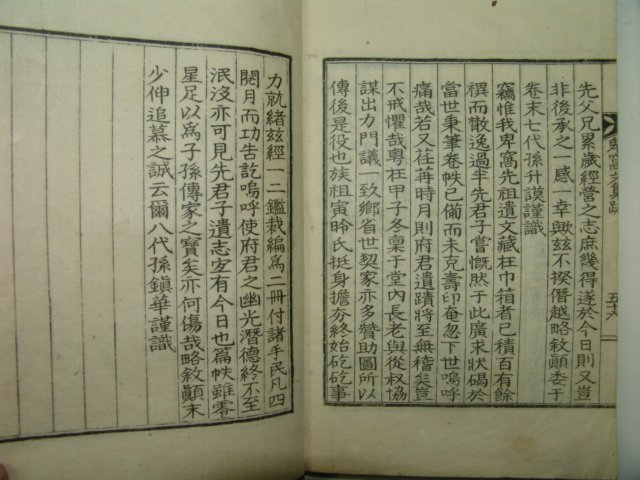 先父兄累歲經營之志庶幾得遂於今日則又豈
非後承之一感一幸歟玆不揆僭越略敘顚委于
卷末七代孫升謨謹識
竊惟我卑窩先祖遺文藏在巾箱者已積百有餘
禩而散逸過半先君子嘗慨然于此廣求狀碣於
當世秉筆卷帙已備而未克壽印奄忽下世嗚呼
痛哉若又荏苒時月則府君遺蹟將至無稽矣豈
不戒懼哉粤在甲子冬稟于堂內長老與從叔協
謀出力門議一致鄕省世契家亦多贊助圖所以
傳後是役也族祖寅昤氏挺身擔夯終始矻矻事
力就緖玆經一二鑑裁編爲二冊付諸手民凡四
閱月而功告訖嗚呼使府君之幽光潛德終不至
泯沒亦可見先君子遺志寔有今日也篇帙雖零
星足以爲子孫傳家之寶矣亦何傷哉略敘顚末
少伸追慕之誠云爾八代孫鎭華謹識
卑窩文集跋
五十六